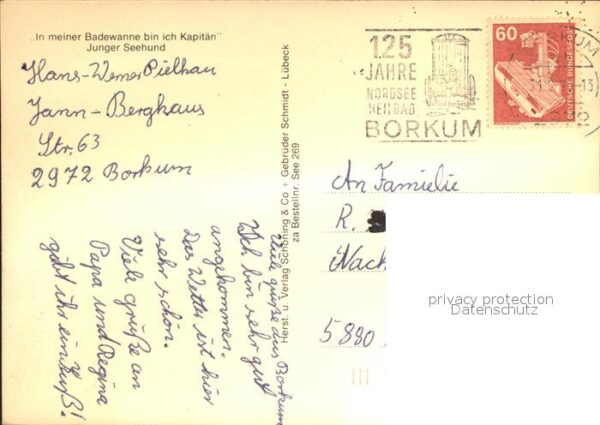 „In meiner Badewanne bin ich Kapitän"
Junger Seehund
Hans-Werner Pielhau
Jann-Berghaus
Str. 63
2972 Borkum
Viele grüße aus Borkum
Ich bin sehr gut
angekommen.
Das Wetter ist hier
sehr schön.
Viele grüße an
Papa und Regina
gibt ihr ein Kuß!
Herst. u. Verlag Schöning & Co + Gebrüder Schmidt - Lübeck
za Bestellnr. See 269
125
JAHRE
NORDSEE
HEILBAD
BORKUM
60
DEUTSCHE BUNDESPOST
An Familie
R.
Nach
5880
privacy protection
Datenschutz